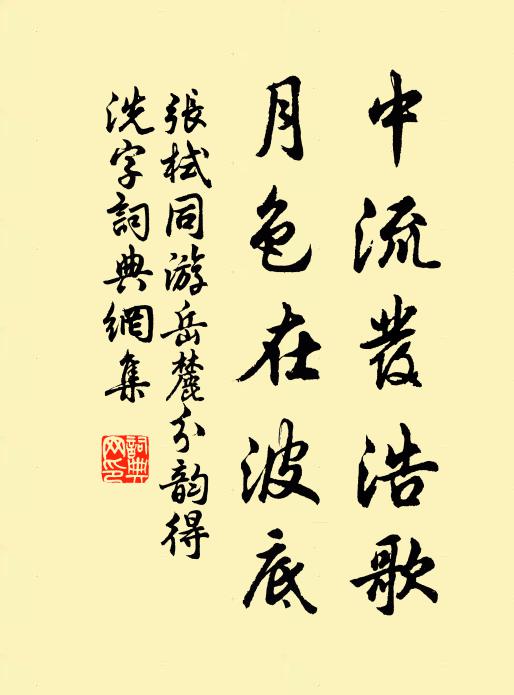 中流發浩歌
月色在波底
張栻同游岳麓分韵得
洗字詞典網集
詞典
网印